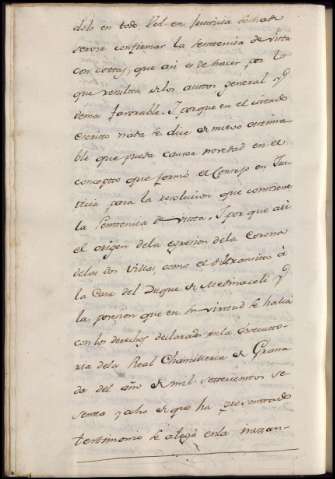 dolo en todo, Vel en Justicia se ha de
servir confirmar la Sentencia de Vista
con costas, que asi es de hacer por lo
que resulta de los autos general y
demas favorable. Y porque en el citado
Escrito nada se dice de nuevo estima-
ble que pueda causar novedad en el
concepto que formó el Consejo en Jus-
ticia para la resolucion que contiene
la Sentencia de Vista. Y porque asi
el origen de la egresion de la Corona
de las dos Villas como el de transito á
la Casa del Duque de Medinaceli y
la posesion que en su virtud se halla
con los derechos declarados en la executo-
ria de la Real Chancilleria de Grana-
da del año de mil setecientos se-
senta y ocho de que ha presentado
testimonio se alegó en la instan-